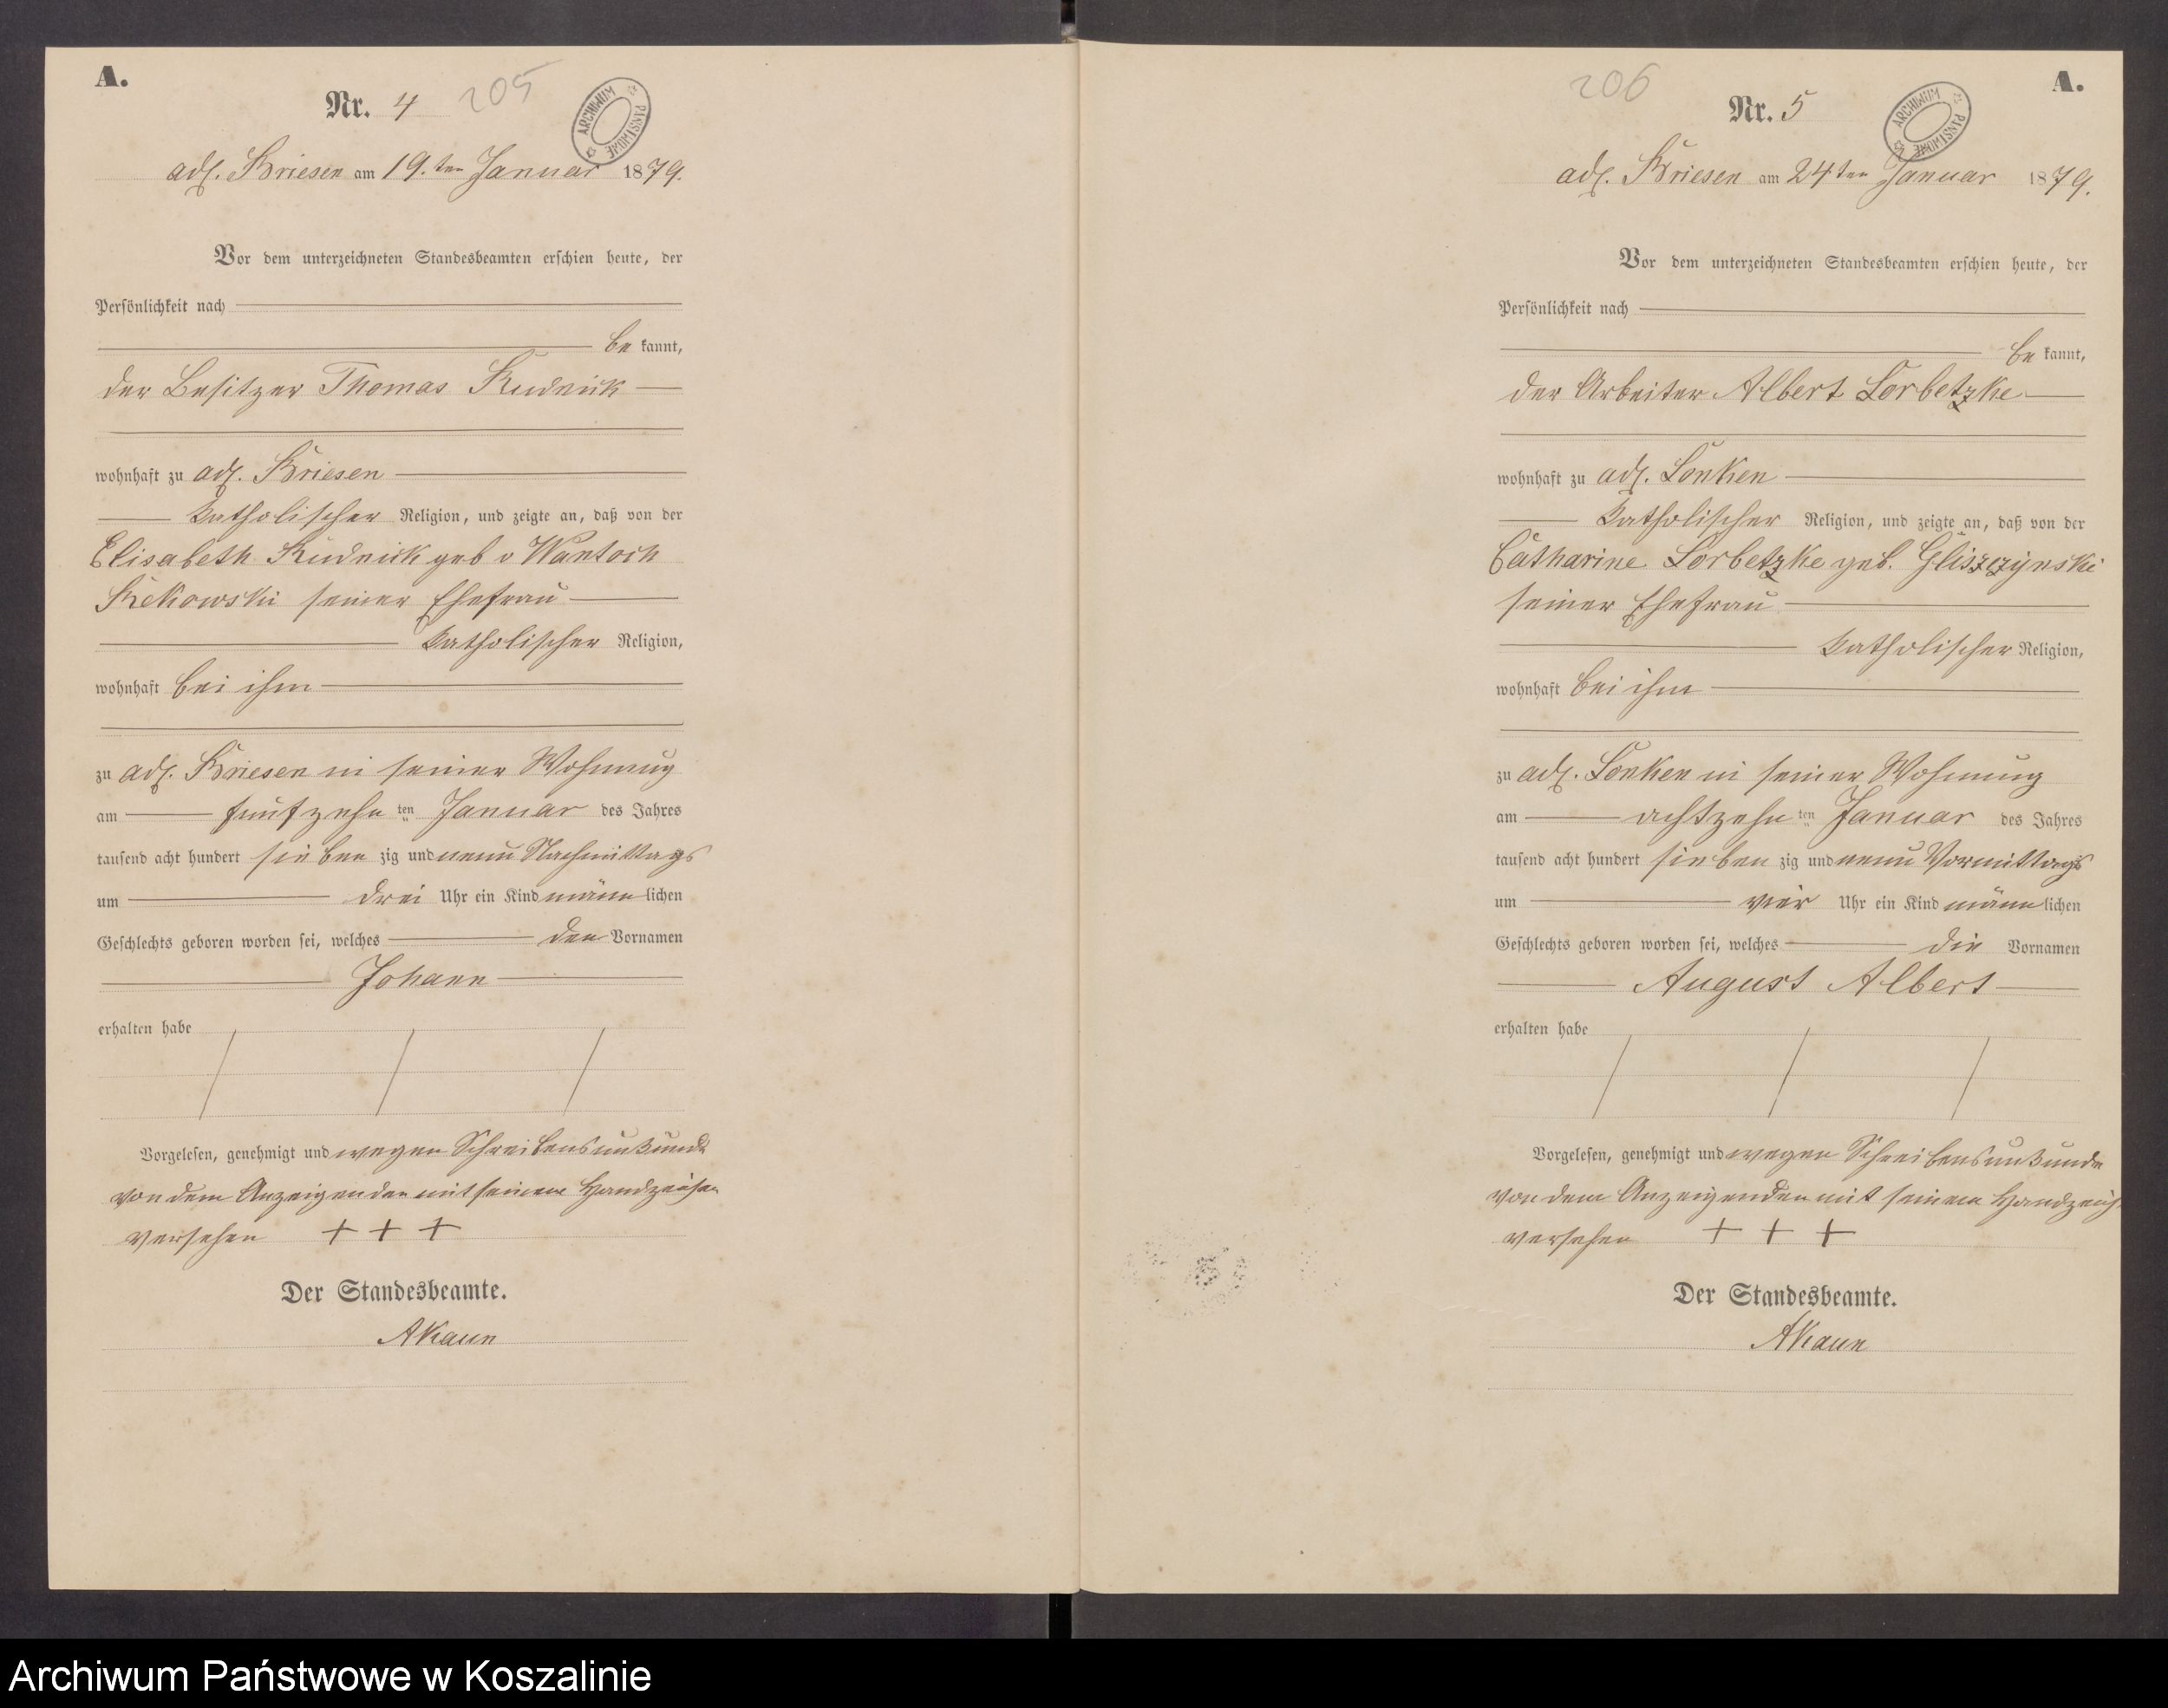 A.
Nr. 4
205
ARCHIWUM PAŃSTWOWE
adl. Briesen am 19.ten Januar 1879.
Vor dem unterzeichneten Standesbeamten erschien heute, der
Persönlichkeit nach
be kannt,
der Besitzer Thomas Rudnick
wohnhaft zu adl. Briesen
katholischer Religion, und zeigte an, daß von der
Elisabeth Rudnick geb v Wantoch
Rekowski seiner Ehefrau
katholischer Religion,
wohnhaft bei ihm
zu adl. Briesen in seiner Wohnung
am fünfzehn ten Januar des Jahres
tausend acht hundert sieben zig und neun Nachmittags
um drei Uhr ein Kind männ lichen
Geschlechts geboren worden sei, welches den Vornamen
Johann
erhalten habe
Vorgelesen, genehmigt und wegen Schreibensunkunde
von dem Anzeigenden mit seinem Handzeichen
versehen + + +
Der Standesbeamte.
AKaun
206
A.
Nr. 5
ARCHIWUM PAŃSTWOWE
adl. Briesen am 24ten Januar 1879.
Vor dem unterzeichneten Standesbeamten erschien heute, der
Persönlichkeit nach
be kannt,
der Arbeiter Albert Lorbetzke
wohnhaft zu adl. Lonken
katholischer Religion, und zeigte an, daß von der
Catharine Lorbetzke geb. Gliszczynski
seiner Ehefrau
katholischer Religion,
wohnhaft bei ihm
zu adl. Lonken in seiner Wohnung
am achtzehn ten Januar des Jahres
tausend acht hundert sieben zig und neun Vormittags
um vier Uhr ein Kind männ lichen
Geschlechts geboren worden sei, welches die Vornamen
August Albert
erhalten habe
Vorgelesen, genehmigt und wegen Schreibensunkunde
von dem Anzeigenden mit seinem Handzeich.
versehen + + +
Der Standesbeamte.
AKaun
Archiwum Państwowe w Koszalinie